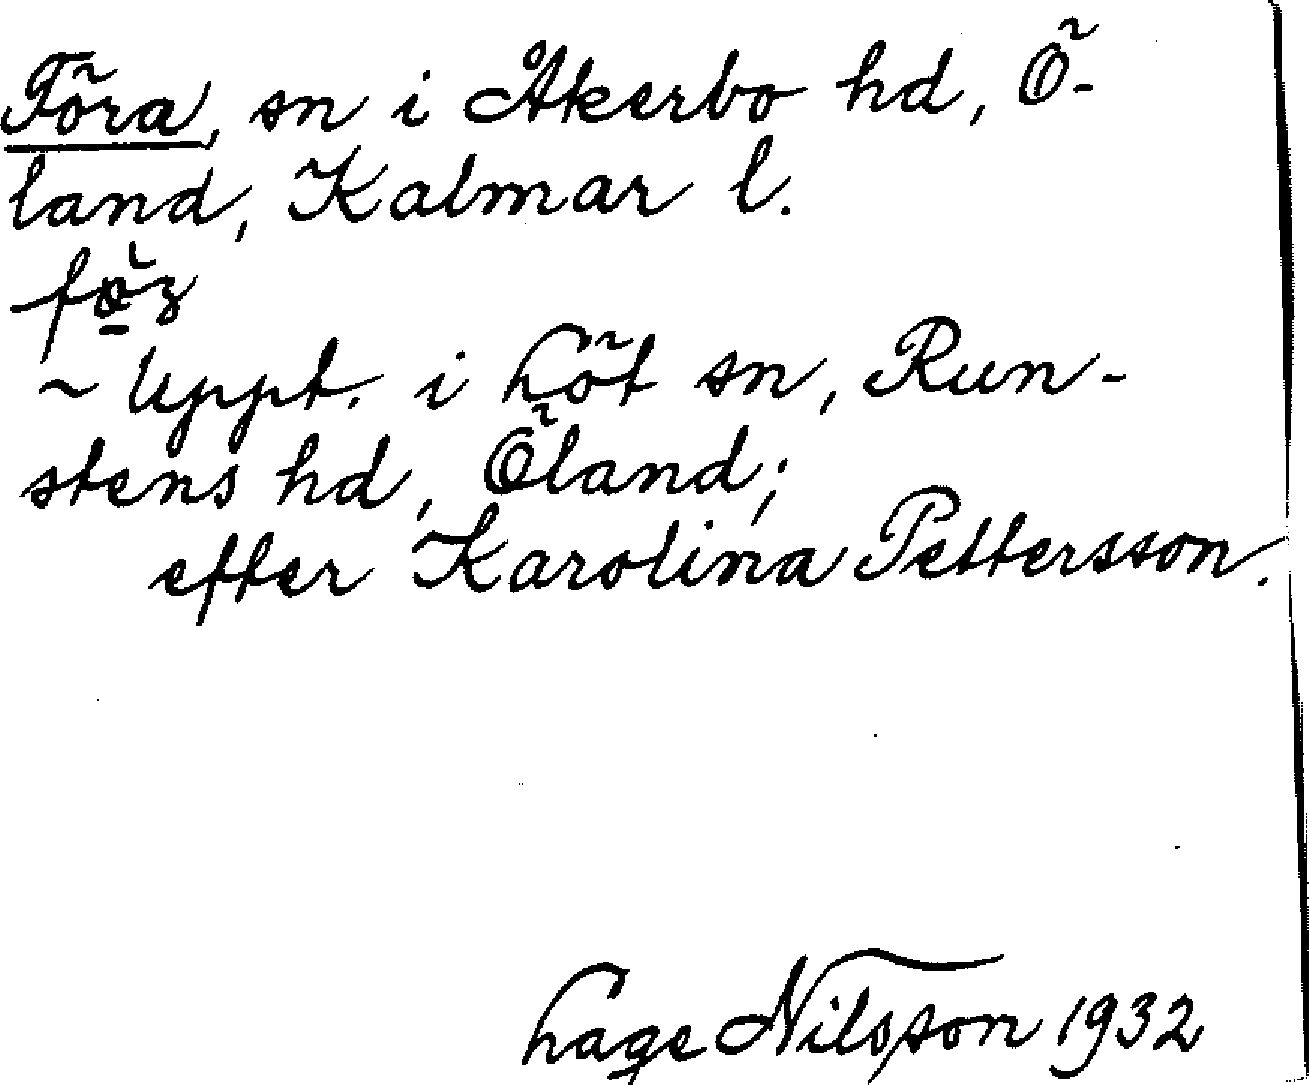 Föra, sn i Åkerbo hd, Ö-
land, Kalmar l.
~ Uppt. i Löt sn, Run-
stens hd, Öland;
efter Karolina Pettersson.
Lage Nilsson 1932